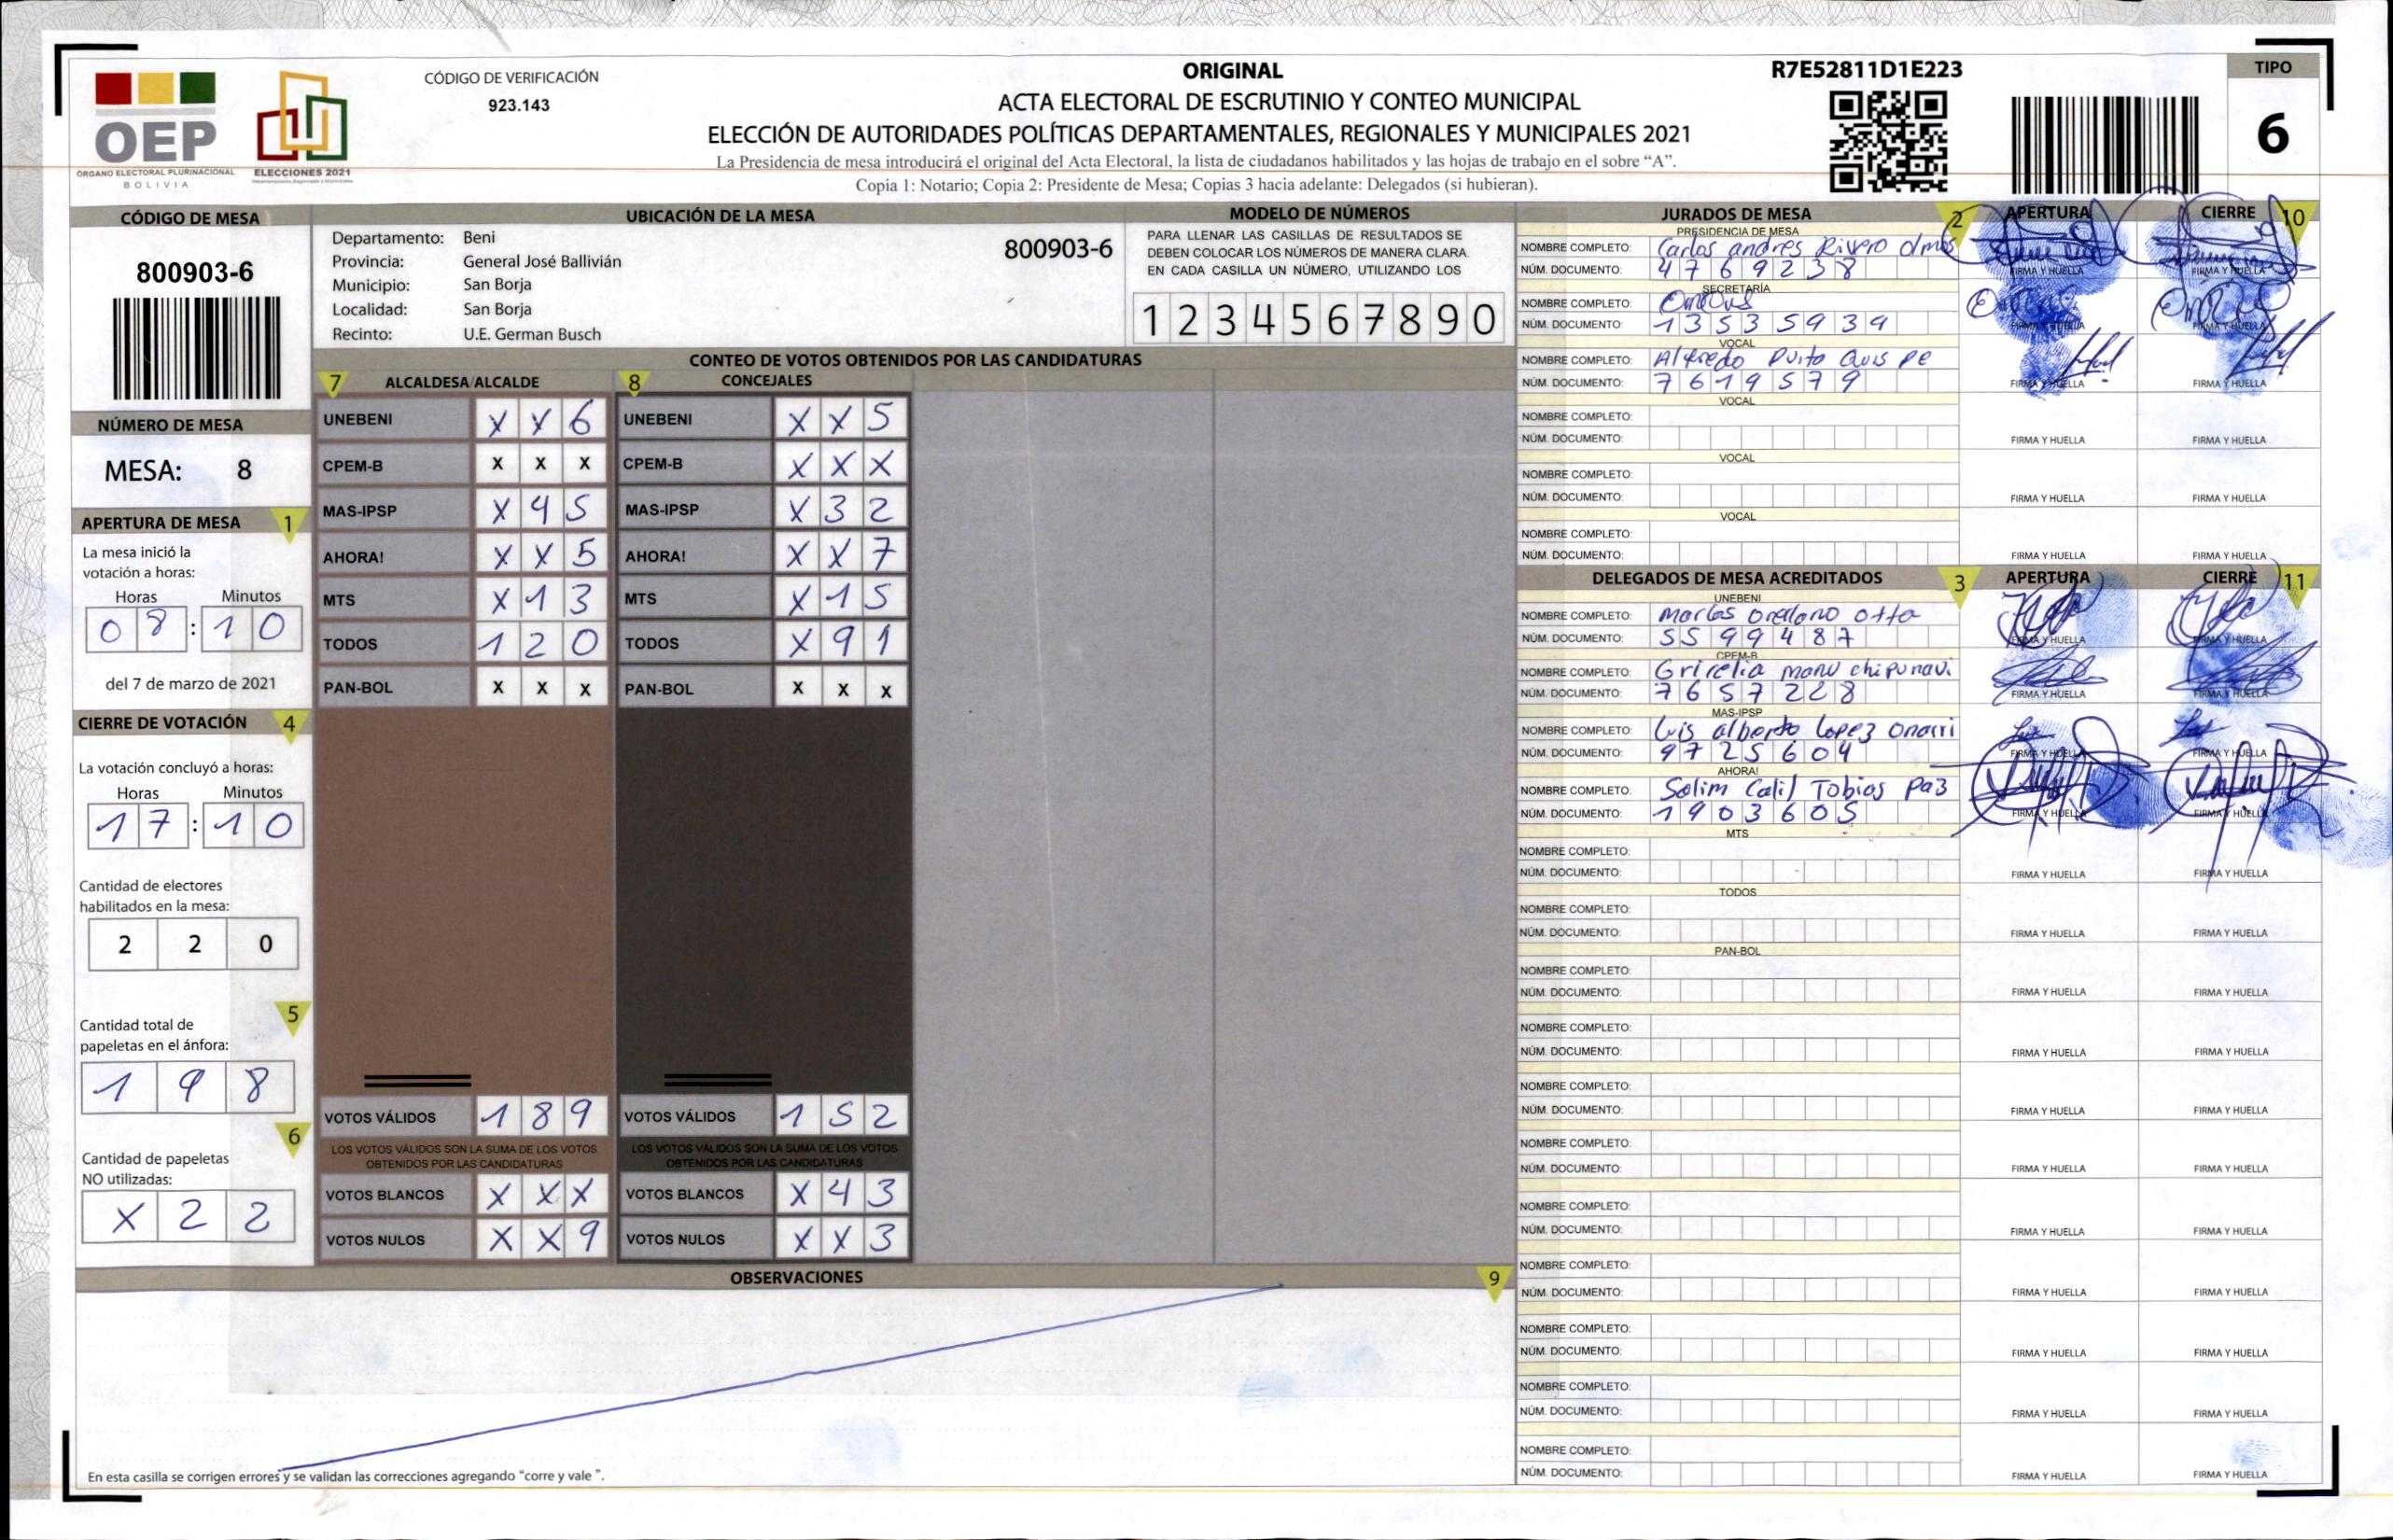 OEP
ÓRGANO ELECTORAL PLURINACIONAL
BOLIVIA
ELECCIONES 2021
CÓDIGO DE VERIFICACIÓN
923.143
ORIGINAL
ACTA ELECTORAL DE ESCRUTINIO Y CONTEO MUNICIPAL
ELECCIÓN DE AUTORIDADES POLÍTICAS DEPARTAMENTALES, REGIONALES Y MUNICIPALES 2021
La Presidencia de mesa introducirá el original del Acta Electoral, la lista de ciudadanos habilitados y las hojas de trabajo en el sobre “A”.
Copia 1: Notario; Copia 2: Presidente de Mesa; Copias 3 hacia adelante: Delegados (si hubieran).
R7E52811D1E223
TIPO
6
CÓDIGO DE MESA
800903-6
NÚMERO DE MESA
MESA: 8
APERTURA DE MESA 1
La mesa inició la
votación a horas:
Horas Minutos
0 8 : 1 0
del 7 de marzo de 2021
CIERRE DE VOTACIÓN 4
La votación concluyó a horas:
Horas Minutos
1 7 : 1 0
Cantidad de electores
habilitados en la mesa:
2 2 0
5
Cantidad total de
papeletas en el ánfora:
1 9 8
6
Cantidad de papeletas
NO utilizadas:
X 2 2
UBICACIÓN DE LA MESA
Departamento: Beni 800903-6
Provincia: General José Ballivián
Municipio: San Borja
Localidad: San Borja
Recinto: U.E. German Busch
MODELO DE NÚMEROS
PARA LLENAR LAS CASILLAS DE RESULTADOS SE
DEBEN COLOCAR LOS NÚMEROS DE MANERA CLARA
EN CADA CASILLA UN NÚMERO, UTILIZANDO LOS
1 2 3 4 5 6 7 8 9 0
CONTEO DE VOTOS OBTENIDOS POR LAS CANDIDATURAS
7 ALCALDESA/ALCALDE 8 CONCEJALES
UNEBENI X X 6 UNEBENI X X 5
CPEM-B X X X CPEM-B X X X
MAS-IPSP X 4 5 MAS-IPSP X 3 2
AHORA! X X 5 AHORA! X X 7
MTS X 1 3 MTS X 1 5
TODOS 1 2 0 TODOS X 9 1
PAN-BOL X X X PAN-BOL X X X
VOTOS VÁLIDOS 1 8 9 VOTOS VÁLIDOS 1 5 2
LOS VOTOS VÁLIDOS SON LA SUMA DE LOS VOTOS LOS VOTOS VÁLIDOS SON LA SUMA DE LOS VOTOS
OBTENIDOS POR LAS CANDIDATURAS OBTENIDOS POR LAS CANDIDATURAS
VOTOS BLANCOS X X X VOTOS BLANCOS X 4 3
VOTOS NULOS X X 9 VOTOS NULOS X X 3
OBSERVACIONES 9
En esta casilla se corrigen errores y se validan las correcciones agregando “corre y vale ”.
JURADOS DE MESA 2 APERTURA CIERRE 10
PRESIDENCIA DE MESA
NOMBRE COMPLETO: Carlos andres Rivero olmos
NÚM. DOCUMENTO: 4 7 6 9 2 3 8 FIRMA Y HUELLA FIRMA Y HUELLA
SECRETARÍA
NOMBRE COMPLETO:
NÚM. DOCUMENTO: 1 3 5 3 5 9 3 9 FIRMA Y HUELLA FIRMA Y HUELLA
VOCAL
NOMBRE COMPLETO: Alfredo Puito Quis pe
NÚM. DOCUMENTO: 7 6 1 9 5 7 9 FIRMA Y HUELLA FIRMA Y HUELLA
VOCAL
NOMBRE COMPLETO:
NÚM. DOCUMENTO: FIRMA Y HUELLA FIRMA Y HUELLA
VOCAL
NOMBRE COMPLETO:
NÚM. DOCUMENTO: FIRMA Y HUELLA FIRMA Y HUELLA
VOCAL
NOMBRE COMPLETO:
NÚM. DOCUMENTO: FIRMA Y HUELLA FIRMA Y HUELLA
DELEGADOS DE MESA ACREDITADOS 3 APERTURA CIERRE 11
UNEBENI
NOMBRE COMPLETO: Marlos Orellano Otta
NÚM. DOCUMENTO: 5 5 9 9 4 8 7 FIRMA Y HUELLA FIRMA Y HUELLA
CPEM-B
NOMBRE COMPLETO: Gricelia manu chipunavi
NÚM. DOCUMENTO: 7 6 5 7 2 2 8 FIRMA Y HUELLA FIRMA Y HUELLA
MAS-IPSP
NOMBRE COMPLETO: Luis alberto Lopez
NÚM. DOCUMENTO: 9 7 2 5 6 0 4 FIRMA Y HUELLA FIRMA Y HUELLA
AHORA!
NOMBRE COMPLETO: Selim Calil Tobias Paz
NÚM. DOCUMENTO: 1 9 0 3 6 0 5 FIRMA Y HUELLA FIRMA Y HUELLA
MTS
NOMBRE COMPLETO:
NÚM. DOCUMENTO: FIRMA Y HUELLA FIRMA Y HUELLA
TODOS
NOMBRE COMPLETO:
NÚM. DOCUMENTO: FIRMA Y HUELLA FIRMA Y HUELLA
PAN-BOL
NOMBRE COMPLETO:
NÚM. DOCUMENTO: FIRMA Y HUELLA FIRMA Y HUELLA
NOMBRE COMPLETO:
NÚM. DOCUMENTO: FIRMA Y HUELLA FIRMA Y HUELLA
NOMBRE COMPLETO:
NÚM. DOCUMENTO: FIRMA Y HUELLA FIRMA Y HUELLA
NOMBRE COMPLETO:
NÚM. DOCUMENTO: FIRMA Y HUELLA FIRMA Y HUELLA
NOMBRE COMPLETO:
NÚM. DOCUMENTO: FIRMA Y HUELLA FIRMA Y HUELLA
NOMBRE COMPLETO:
NÚM. DOCUMENTO: FIRMA Y HUELLA FIRMA Y HUELLA
NOMBRE COMPLETO:
NÚM. DOCUMENTO: FIRMA Y HUELLA FIRMA Y HUELLA
NOMBRE COMPLETO:
NÚM. DOCUMENTO: FIRMA Y HUELLA FIRMA Y HUELLA
NOMBRE COMPLETO:
NÚM. DOCUMENTO: FIRMA Y HUELLA FIRMA Y HUELLA